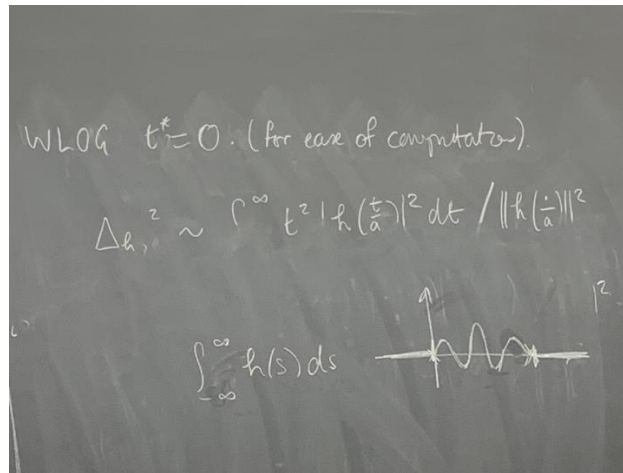 WLOG t*=0. (for ease of computation).
Δ_h,² ~ ∫^∞ t² |h(t/a)|² dt / ‖h(·/a)‖²
|²
∫_{-∞}^{∞} h(s) ds